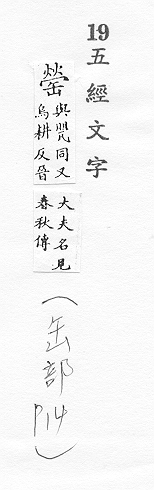 19 五經文字
罃
與同又
烏耕反晉
大夫名見
春秋傳
(缶部P14)